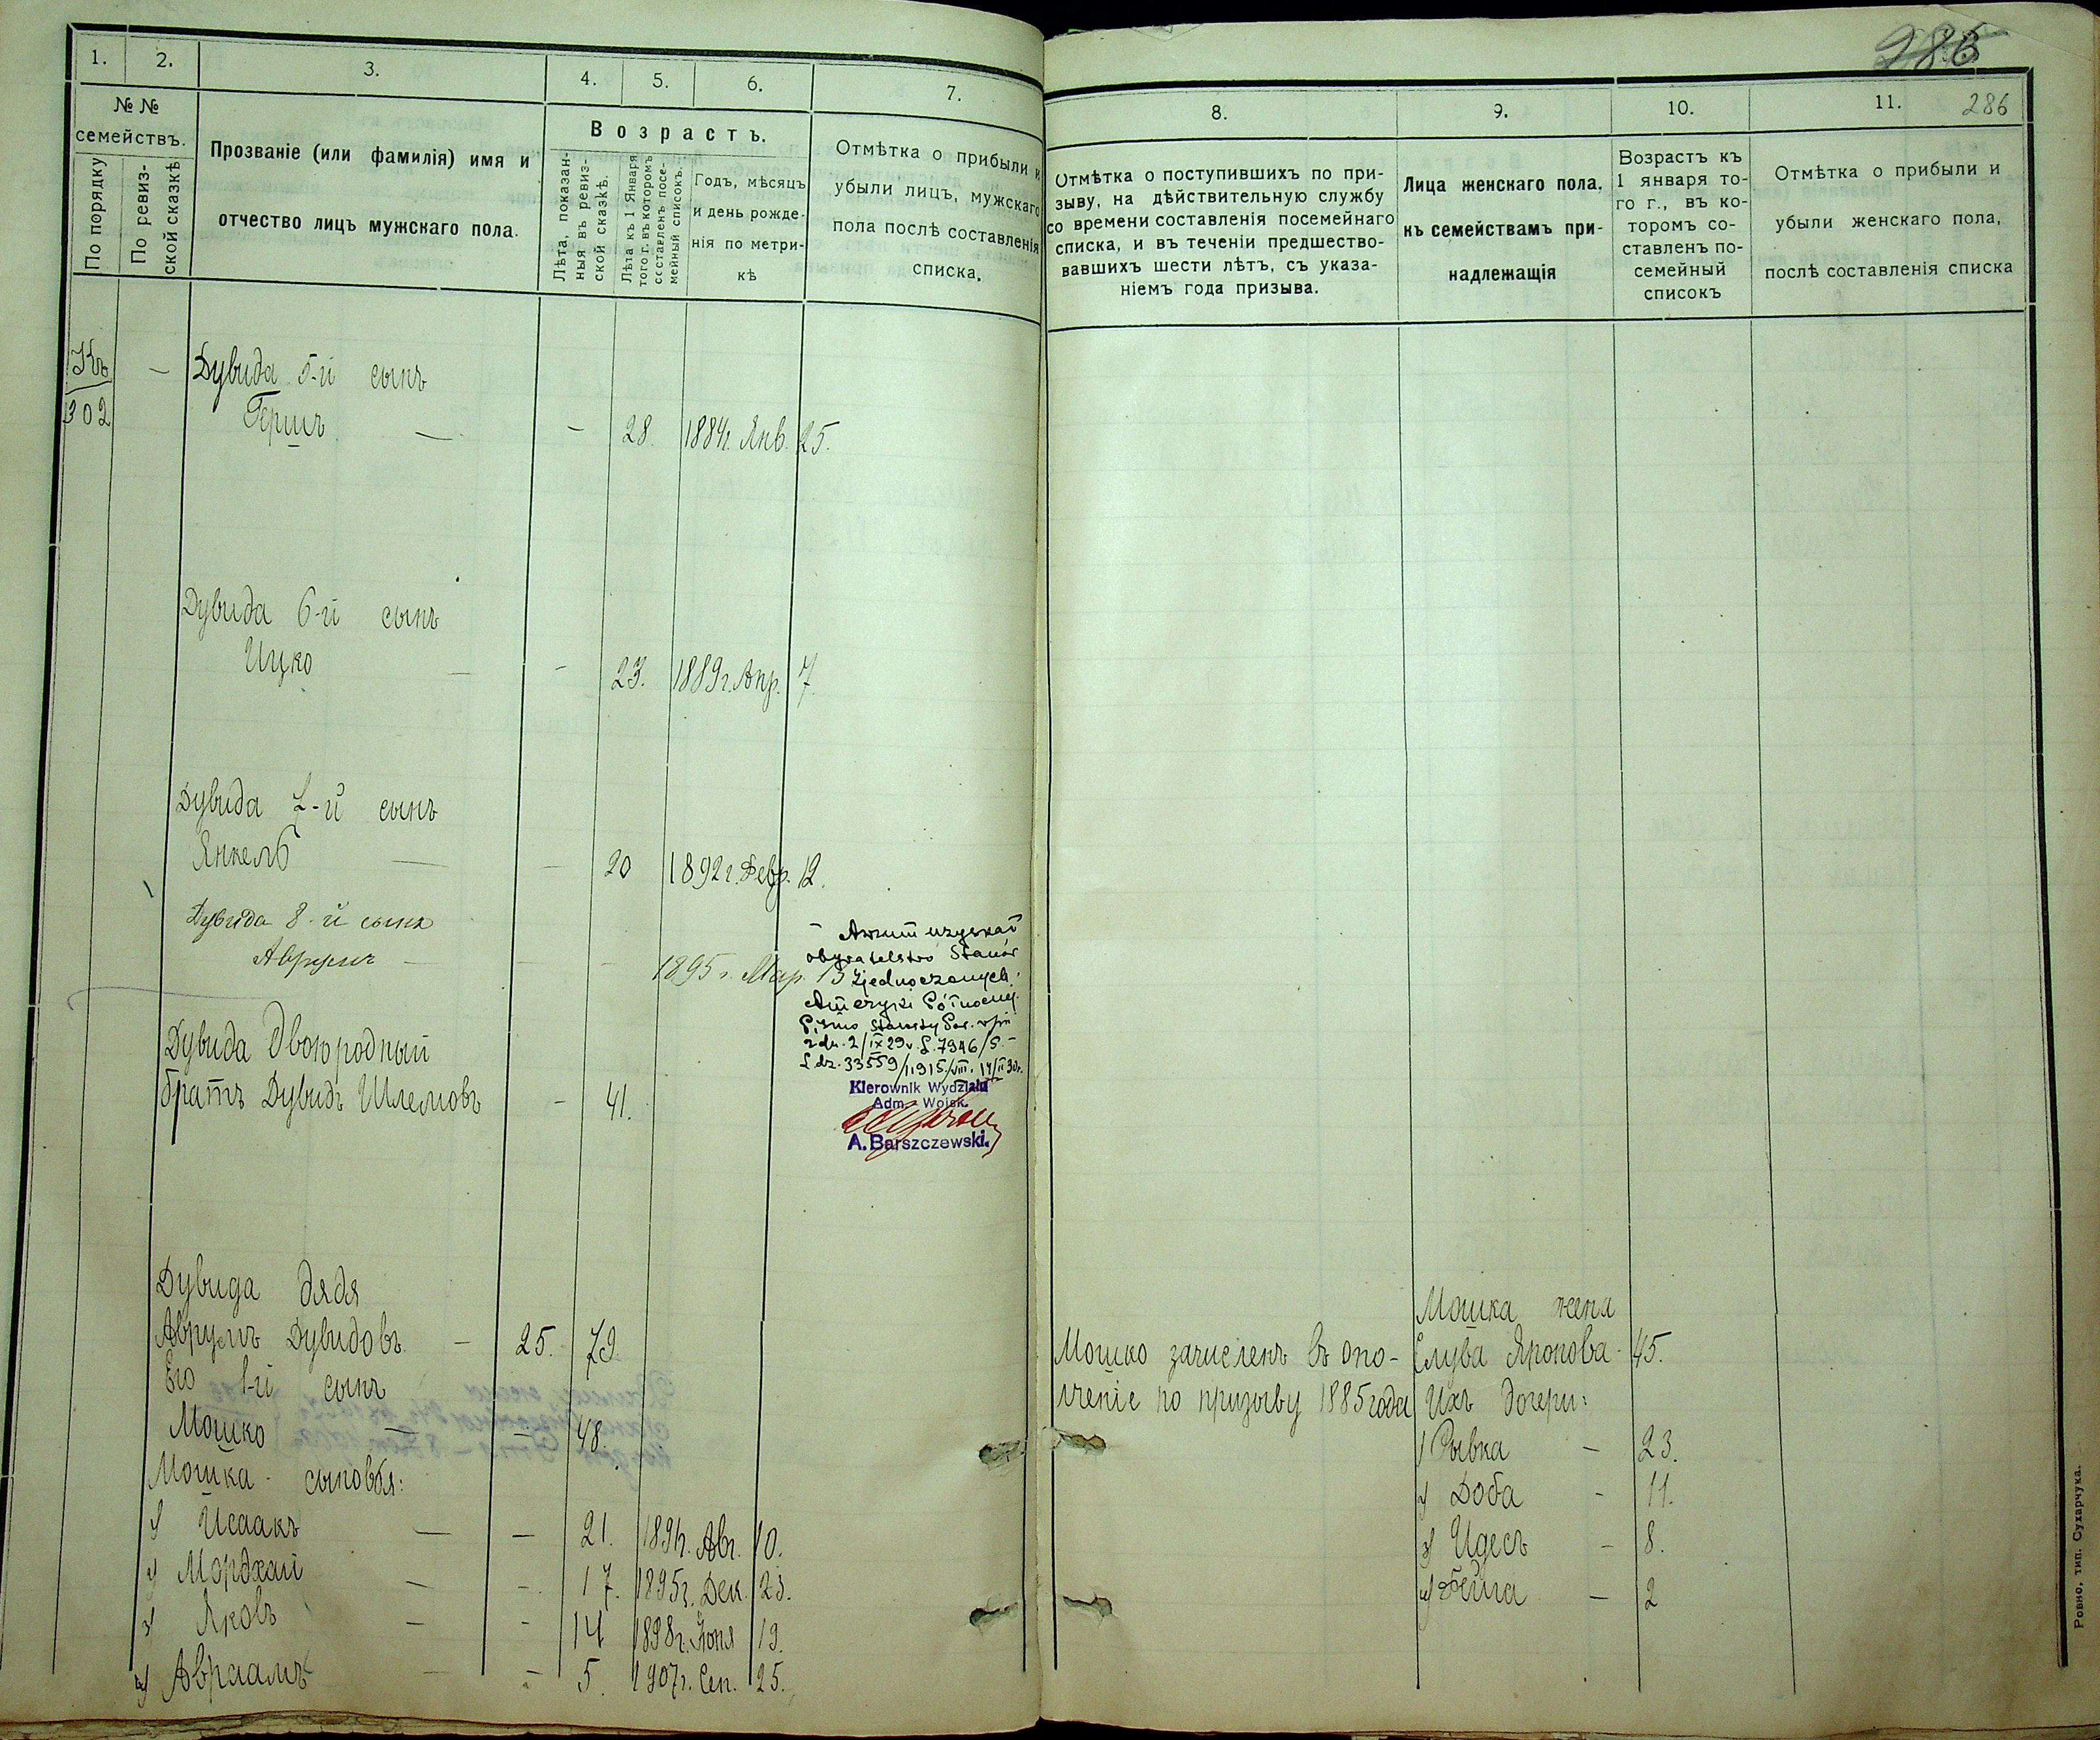 1.
2.
3.
4.
5.
6.
7.
№ №
семействъ.
По порядку
По ревиз-
ской сказкѣ
Прозваніе (или фамилія) имя и
отчество лицъ мужскаго пола.
Возрастъ.
Лѣта, показан-
ныя въ ревиз-
ской сказкѣ.
Лѣта къ 1 Января
того г. въ которомъ
составленъ посе-
мейный списокъ.
Годъ, мѣсяцъ
и день рожде-
нія по метри-
кѣ
Отмѣтка о прибыли и
убыли лицъ, мужскаго
пола послѣ составленія
списка.
Къ
302
— Дувида 5-й сынъ
Гершъ — — 28. 1884г. Янв. 25.
Дувида 6-й сынъ
Ицко — — 23. 1889г. Апр. 7.
Дувида 7-й сынъ
Янкель — — 20 1892г. Февр. 12.
Дувида 8-й сынъ
Аврумъ — — — 1895 г. Мар. 13
Awrum uzyskał
obywatelstwo Stanów
Zjednoczonych
Ameryki Północnej.
Pismo Starosty Pow.
z dn. 2/IX 29 r. L. 7946/5. —
L. dz. 33559/1915/VIII. 14/II 30 r.
Kierownik Wydziału
Adm. Wojsk.
A. Barszczewski.
Дувида двоюродный
братъ Дувидъ Шлемовъ — 41.
Дувида дядя
Аврумъ Дувидовъ — 25. 79.
Его 1-й сынъ
Мошко — — 48.
Мошка сыновья:
1) Исаакъ — — 21. 1891г. Авг. 10.
2) Мордхай — — 17. 1895г. Дек. 25.
3) Яковъ — — 14 1898г. Іюня 19.
4) Авраамъ — — 5. 1907г. Сен. 25.
285
286
8.
9.
10.
11.
Отмѣтка о поступившихъ по при-
зыву, на дѣйствительную службу
со времени составленія посемейнаго
списка, и въ теченіи предшество-
вавшихъ шести лѣтъ, съ указа-
ніемъ года призыва.
Лица женскаго пола,
къ семействамъ при-
надлежащія
Возрастъ къ
1 января то-
го г., въ ко-
торомъ со-
ставленъ по-
семейный
списокъ
Отмѣтка о прибыли и
убыли женскаго пола,
послѣ составленія списка
Мошко зачисленъ въ опо-
лченіе по призыву 1885 года
Мошка жена
Слува Яронова 45.
Ихъ дочери:
1) Рывка — 23.
2) Доба — 11.
3) Идесъ — 8.
4) Фейга — 2
Ровно, тип. Сухарчука.